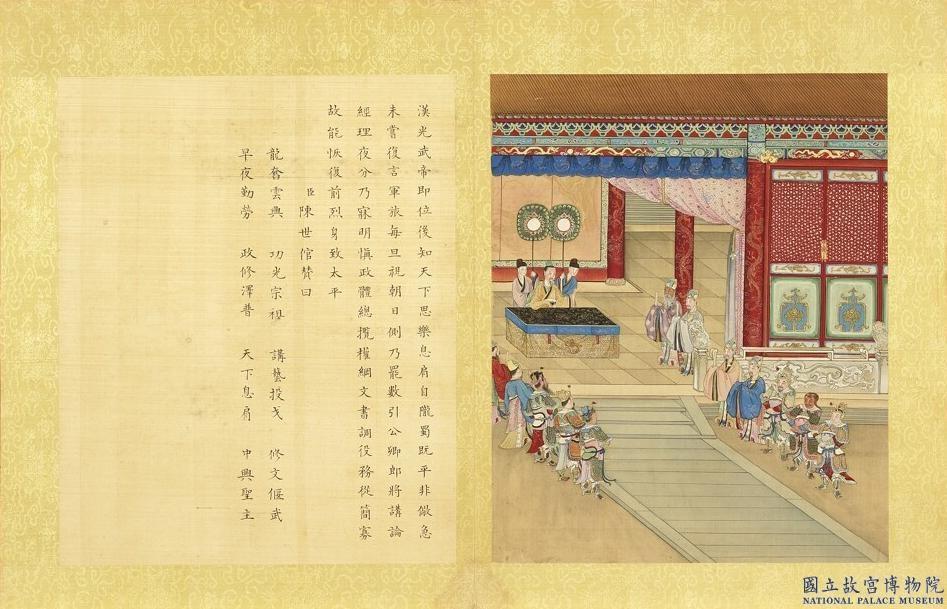 漢光武帝即位後知天下思樂息肩自隴蜀既平非儆急
未嘗復言軍旅每旦視朝日側乃罷數引公卿郎將講論
經理夜分乃寐明慎政體總攬權綱文書調役務從簡寡
故能恢復前烈身致太平
臣陳世倌贊曰
龍奮雲興 功光宗祖 講藝投戈 修文偃武
早夜勤勞 政修澤普 天下息肩 中興聖主
國立故宮博物院
NATIONAL PALACE MUSEUM